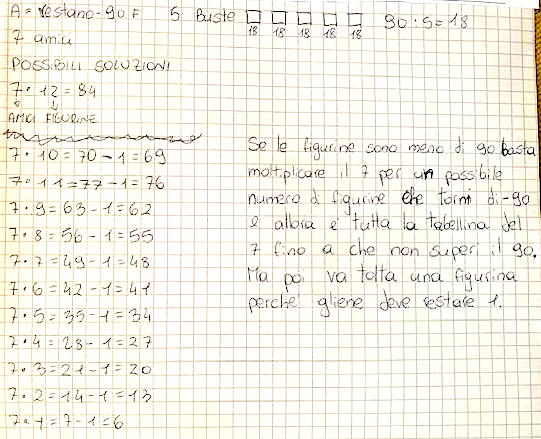 A = restano - 90 F 5 Buste 90 : 5 = 18
18 18 18 18 18
7 amici
POSSIBILI SOLUZIONI
7 · 12 = 84
AMICI FIGURINE
7 · 10 = 70 - 1 = 69
7 · 11 = 77 - 1 = 76
7 · 9 = 63 - 1 = 62
7 · 8 = 56 - 1 = 55
7 · 7 = 49 - 1 = 48
7 · 6 = 42 - 1 = 41
7 · 5 = 35 - 1 = 34
7 · 4 = 28 - 1 = 27
7 · 3 = 21 - 1 = 20
7 · 2 = 14 - 1 = 13
7 · 1 = 7 - 1 = 6
Se le figurine sono meno di 90 basta
moltiplicare il 7 per un possibile
numero di figurine che torni di -90
e allora è tutta la tabellina del
7 fino a che non superi il 90.
Ma poi va tolta una figurina
perché gliene deve restare 1.